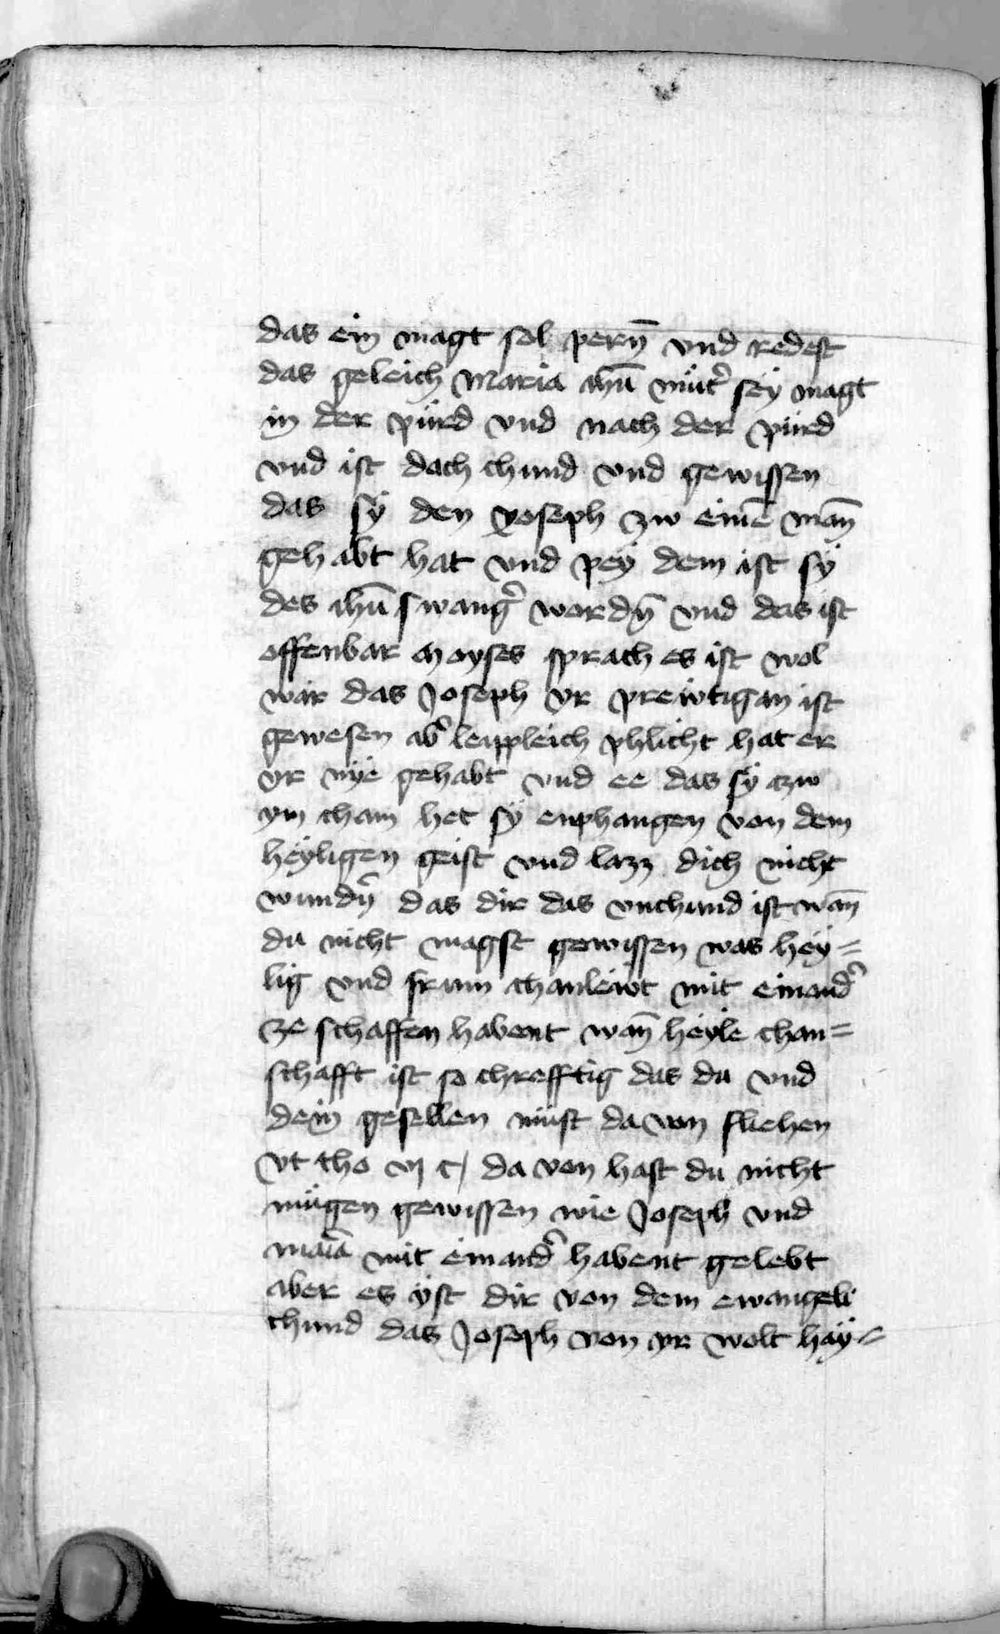 das ein magt sol pern̄ vnd redest
das geleich Maria ihū müt᷑ sëy magt
in der pürd vnd nach der pürd
vnd ist doch chund vnd gewissen
das sÿ den yoseph zw einē man̄
gehabt hat vnd pëy dem ist sÿ
des ihū swang᷑ wordn̄ vnd das ist
offenbar Moyses sprach es ist wol
war das Joseph yr prewtigan ist
gewesen ab᷑ leypleich phlicht hat er
yr nÿe gehabt vnd ee das sÿ czw
ym cham het sÿ enphangen von dem
hëyligen geist vnd lazz dich nicht
wundn̄ das dir das vnchund ist wan̄
du nicht magst gewissen was hëy=
lig vnd frum chanlëwt mit einand᷑
ze schaffen habent wan̄ hëyle chan=
schafft ist so chrefftig das du vnd
dein gesellen müst da von fliehen
vt tho vj c̄ da von hast du nicht
mügen gewissen wie Joseph vnd
maīa mit einand᷑ habent gelebt
aber es ÿst dir von dem ewangeli
chund das Joseph von yr wolt haÿ=